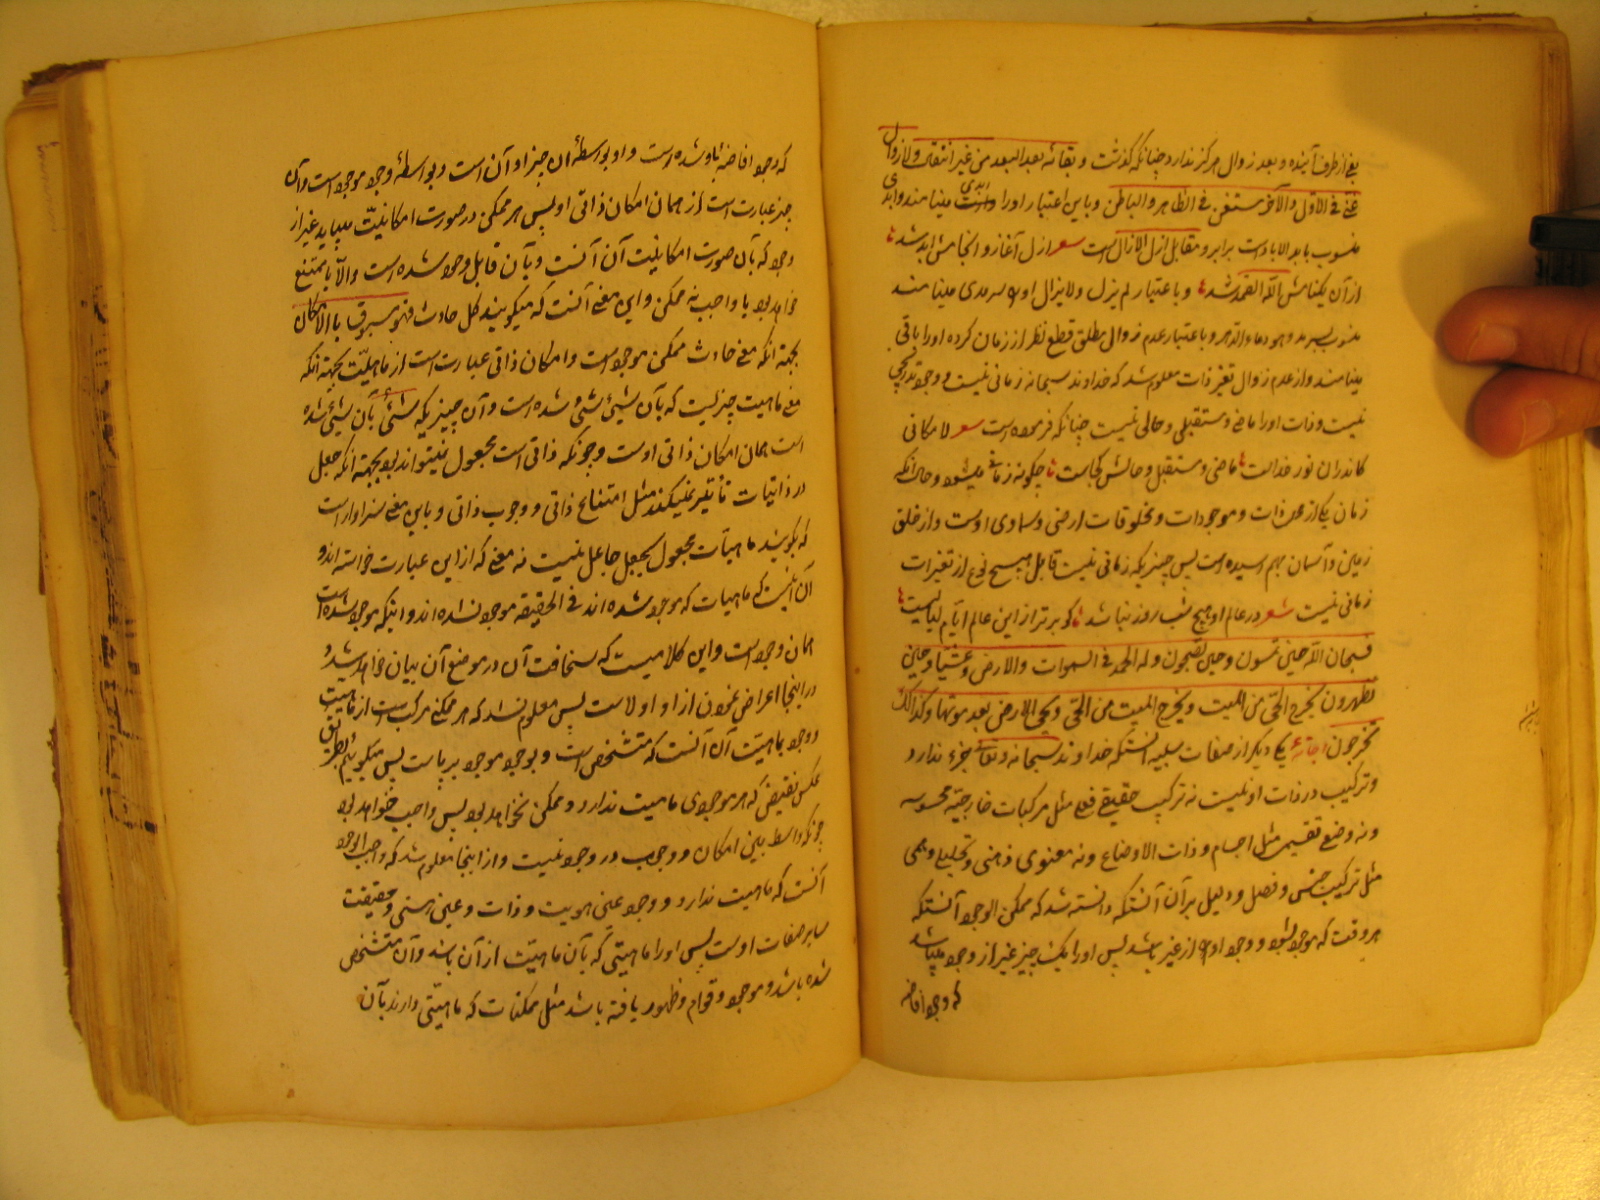 یعنی از طرف آینده و بعد زوال هرگز ندارد چنانکه گذشت و بقائه بعد البعد من غیر انتقال و لا زوال
غنی فی الاول و الآخر مستغن فی الظاهر و الباطن و باین اعتبار او را ابدی مینامند و ابدی
منسوب بابد الاباد است برابر و مقابل ازل الآزال است شعر ازل آغاز و انجامش ابد شد
از آن یکتامنش الله الصمد شد و با عتبار لم یزل و لا یزال او را سرمدی مینامند
منسوب بسرمد و هو دهر و باعتبار عدم زوال مطلق قطع نظر از زمان کرده او را باقی
مینامند و از عدم زوال تغیر ذات معلوم شد که خداوند سبحانه زمانی نیست و وجود تدریجی
نیست و ذات او را ماضی و مستقبلی و حالی نیست چنانکه فرموده است شعر لامکانی
کاندران نور خداست ماضی و مستقبل و حالش کجاست چگونه زمانی میشود و حال آنکه
زمان یکی از محدثات و موجودات و مخلوقات ارضی و سماوی اوست و از خلق
زمین و آسمان بهم رسیده است پس چیزیکه زمانی نیست قابل هیچ نوع از تغیرات
زمانی نیست شعر در عالم او هیچ شب روز نباشد کو برتر از این عالم ایام لیالیست
فسبحان الله حین تمسون و حین تصبحون و له الحمد فی السموات والارض و عشیا و حین
تظهرون یخرج الحی من المیت و یخرج المیت من الحی و یحیی الارض بعد موتها و کذالک
تخرجون یکی دیگر از صفات سلبیه آنستکه خداوند سبحانه و تعالی جزء ندارد
و ترکیب در ذات او نیست نه ترکیب حقیقی فعلی مثل مرکبات خارجیه محسوسه
و نه وضعی تقسیمی مثل اجسام و ذات الاوضاع و نه معنوی ذهنی و تحلیلی وهمی
مثل ترکیب جنس و فصل و دلیل بر آن آنستکه دانسته شد که ممکن الوجود آنستکه
هر وقت که موجود شود و وجود او از غیر باشد پس او را یک چیز غیر از وجود میباشد
که وجود افاضه
که وجود افاضه باو شده است و او بواسطهٔ آن چیز او آن است و بواسطهٔ وجود موجود است و آن
چیز عبارت است از همان امکان ذاتی او پس هر ممکن در صورت امکانیت میباید غیر از
وجود که بآن صورت امکانیت آن آنست و بآن قابل وجود شده است و الا یا ممتنع
خواهد بود یا واجب نه ممکن و این معنی آنست که میگویند کل حادث فهو مسبوق بالامکان
بجهة آنکه معنی حادث ممکن موجود است و امکان ذاتی عبارت است از ماهیت بجهة آنکه
معنی ماهیت چیزیست که بآن شیئ شیئ شده است و آن چیزیکه شیئ بآن شیئ شده
است همان امکان ذاتی اوست و چونکه ذاتی است مجعول نمیتواند بود بجهة آنکه جعل
در ذاتیات تأثیر نمیکند مثل امتناع ذاتی و وجوب ذاتی و باین معنی سزاوار است
که بگویند ماهیات مجعول بجعل جاعل نیست نه معنی که از این عبارت خواسته اند و
آن اینست که ماهیات که موجود شده اند فی الحقیقه موجود نشده اند و اینکه موجود شده است
همان وجود است و این کلامیست که سخافت آن در موضع آن بیان خواهد شد و
در اینجا اعراض نمودن از او اولاست پس معلوم شد که هر ممکنی مرکب است از ماهیت
و وجود ماهیت آن آنست که متشخص است و بوجود موجود بر پاست پس میگوییم بطریق
عکس نقیض که هر موجودی ماهیت ندارد و ممکن نخواهد بود پس واجب خواهد بود
چونکه واسط بین امکان و وجوب در وجود نیست و از اینجا معلوم شد که واجب الوجود
آنست که ماهیت ندارد و وجود عین هویت و ذات و عین هستی و حقیقت
سایر صفات اوست پس او را ماهیتی که بآن ماهیت از آن باشد و آن متشخص
شده باشد و موجود و قوام و ظهور یافته باشد مثل ممکنات که ماهیتی دارند بآن